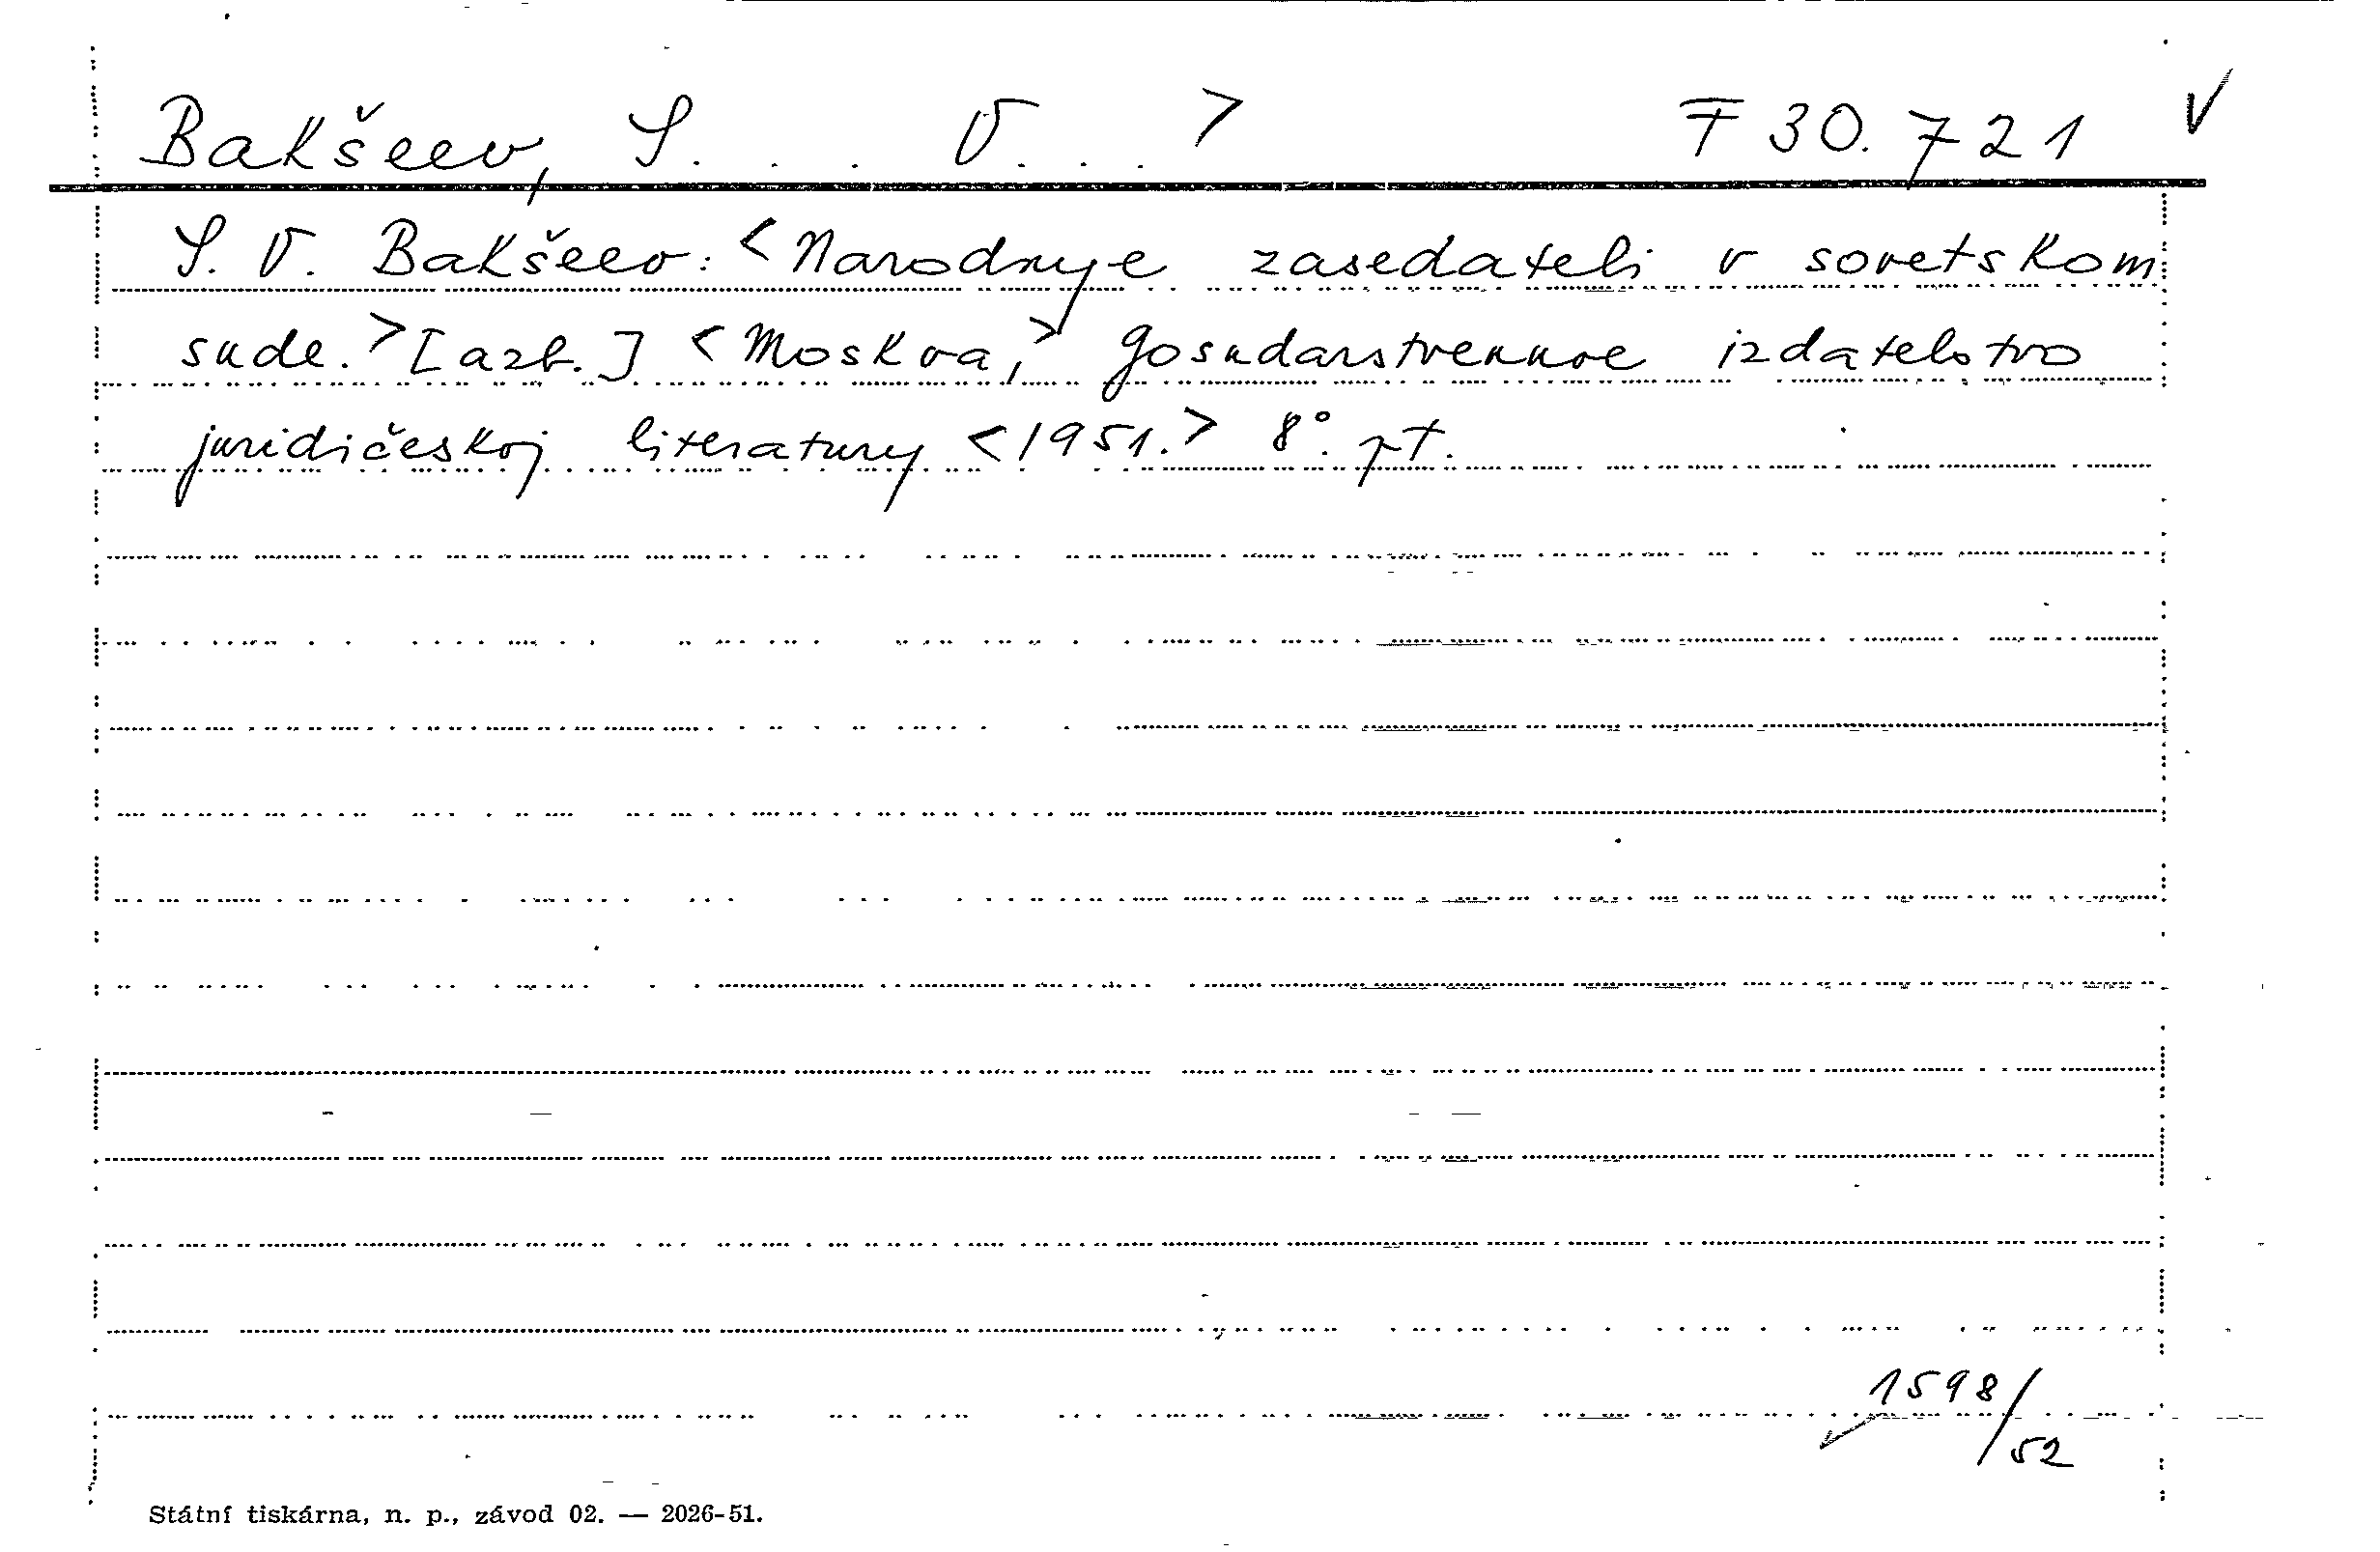 Bakšeev, S. . . V. . . > F 30.721 √
S. V. Bakšeev: <Narodnye zasedateli v sovetskom
sude.> [azb.] <Moskva,> Gosudarstvennoe izdatelstvo
juridičeskoj literatury <1951.> 8°. pt.
1598/52
Státní tiskárna, n. p., závod 02. — 2026-51.